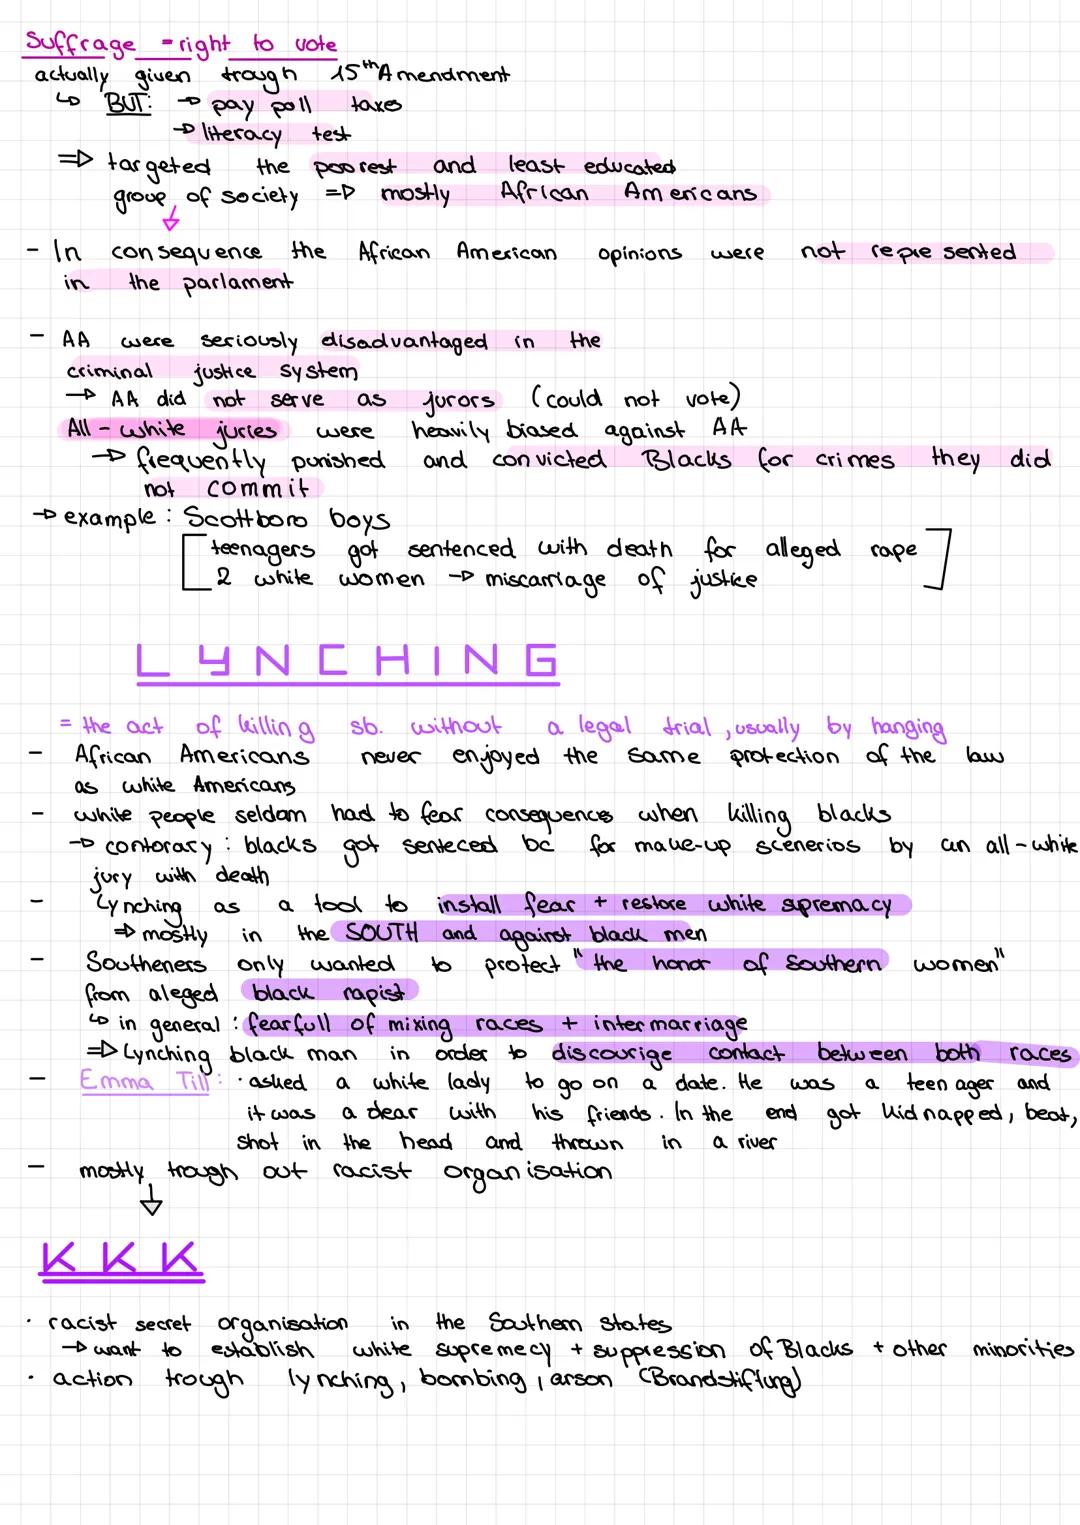 Suffrage = right to vote
actually given trough 15th Amendment
↳ BUT: → pay poll taxes
→ literacy test
⇒ targeted the poorest and least educated
group of society ⇒ mostly African Americans
↓
- In consequence the African American opinions were not represented
in the parlament
- AA were seriously disadvantaged in the
criminal justice system
→ AA did not serve as jurors (could not vote)
All-white juries were heavily biased against AA
→ frequently punished and convicted Blacks for crimes they did
not commit
→ example: Scottboro boys
[teenagers got sentenced with death for alleged rape
2 white women → miscarriage of justice]
LYNCHING
= the act of killing sb. without a legal trial, usually by hanging
- African Americans never enjoyed the same protection of the law
as white Americans
- white people seldom had to fear consequences when killing blacks
→ contorary: blacks got senteced bc for make-up scenerios by an all-white
jury with death
- Lynching as a tool to install fear + restore white supremacy
⇒ mostly in the SOUTH and against black men
- Southeners only wanted to protect "the honor of Southern women"
from aleged black rapist
↳ in general: fearfull of mixing races + intermarriage
⇒ Lynching black man in order to discourige contact between both races
- Emma Till: · asked a white lady to go on a date. He was a teenager and
it was a dear with his friends. In the end got kidnapped, beat,
shot in the head and thrown in a river
- mostly trough out racist organisation
↓
KKK
· racist secret organisation in the Southern States
→ want to establish white supremecy + suppression of Blacks + other minorities
· action trough lynching, bombing, arson (Brandstiftung)